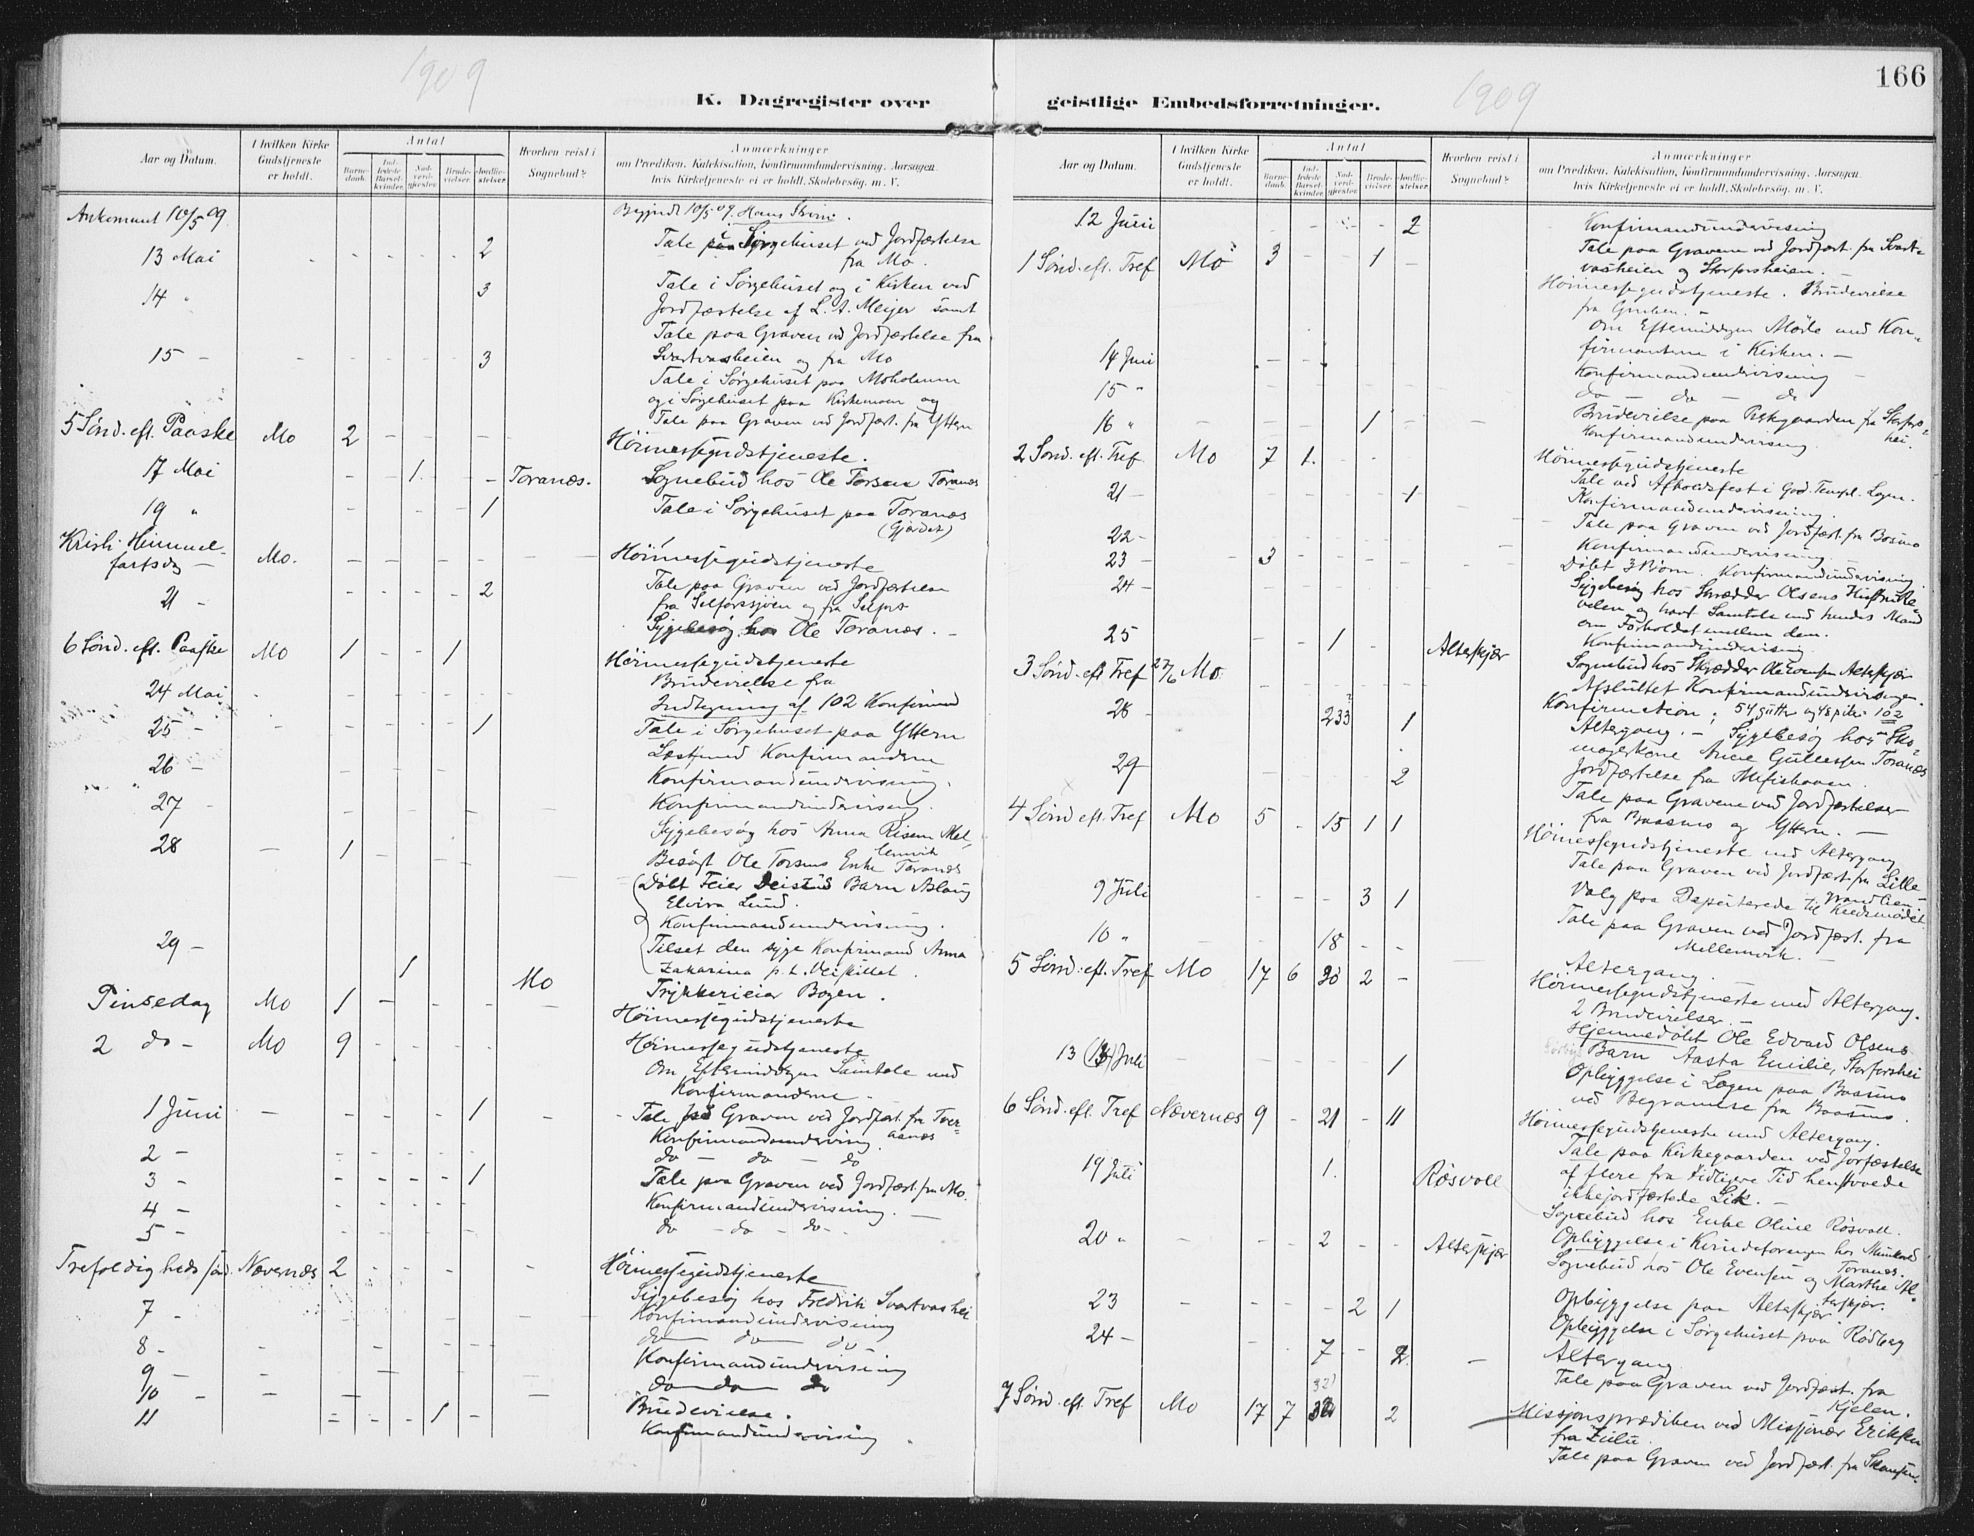 166
1909
1909
K. Dagregister over
geistlige Embedsforretninger.
Aar og Datum.
I hvilken Kirke Gudstjeneste er holdt.
Antal
Barne-daab.
Ind-ledede Barsel-kvinder.
Nad-verd-gjester.
Brude-vielser.
Jordfæ-stelser.
Hvorhen reist i Sognebud?
Anmærkninger
om Prædiken, Katekisation, Konfirmandundervisning, Aarsagen,
hvis Kirketjeneste ei er holdt, Skolebesøg, m. V.
Ankommet 10/5 09
Begyndt 10/5 09.
13 Mai - - - - 2 Tale i Sørgehuset ved Jordfæstelse
fra Mo.
14 " 3 Tale i Sørgehuset og i Kirken ved
Jordfæstelse af L. A. Meijer samt
Tale paa Graven ved Jordfæstelse fra
Svartvasheien og fra Mo
15 - - - - - 3 Tale i Sørgehuset paa Moholmen
og i Sørgehuset paa Kirkemoen og
Tale paa Graven ved Jordfæst. fra Yttern
5 Sønd. eft. Paaske Mo 2 - - - - Høimessegudstjeneste.
17 Mai - - 1 - - Toranæs. Sognebud hos Ole Torsen Toranæs
19 " - - - - 1 Tale i Sørgehuset paa Toranæs
(Gjærdet)
Kristi Himmel-
fartsdag - Mo. - - - - - Høimessegudstjeneste
21 - - - - - 2 Tale paa Graven ved Jordfæstelse
fra Selforssjøen og fra Selfors
Sygebesøg hos Ole Toranæs. -
6 Sønd. eft. Paaske Mo 1 - - 1 - Høimessegudstjeneste
Brudevielse fra
24 Mai Indtegning af 102 Konfirmand
25 - - - - - 1 Tale i Sørgehuset paa Yttern
Konfirmanderne
26 - Konfirmandundervisning.
27 - Konfirmandundervisning.
Sygebesøg hos Anna
28 - 1 - - - Besøgt Ole Torsens Enke Toranæs
Døbt Barn Aslaug
Elvira Lund.
Konfirmandundervisning.
29 - 1 Mo Tilset den syge Konfirmand Anna
Zakarina p. t.
Bogen.
Pinsedag Mo 1 - - - - Høimessegudstjeneste
2 do - Mo 9 Høimessegudstjeneste
Om Eftermiddagen Samtale med
Konfirmanderne.
1 Juni - - - - - 1 - Tale paa Graven ved Jordfæst. fra
Konfirmandundervisning
2 - do - do - do
3 - - - - - 1 Tale paa Graven ved Jordfæst. fra Mo.
4 - Konfirmandundervisning. -
5 - do - do - do -
Trefoldigheds Nævernæs 2 - - - - - Høimessegudstjeneste
7 - Sygebesøg hos Fredrik Svartvashei
Konfirmandundervisning
8 - do do do
9 - Konfirmandundervisning
10 - do do do
11 - - - 1 - Brudevielse.
Konfirmandundervisning
12 Juni 2 Konfirmandundervisning
Tale paa Gravene ved Jordfæst. fra Svart-
vasheien og Storforsheien. -
1 Sønd. eft. Tref Mo 3 - - 1 - Høimessegudstjeneste. Brudevielse
fra Gruben. -
Om Eftermiddagen Møde med Kon-
firmanterne i Kirken. -
14 Juni Konfirmandundervisning -
15 " do - do - do
16 " 1 - Brudevielse paa fra Storfors-
hei.
Konfirmandundervisning
2 Sønd. eft. Tref Mo 7 1. - - - Høimessegudstjeneste
Tale ved Afholdsfest i God. Templ. Logen.
21 - - - - - 1 Konfirmandundervisning.
Tale paa Graven ved Jordfæst. fra Bosmo
22 - Konfirmandundervisning.
23 - - 3 - - - - Døbt 3 Børn. Konfirmandundervisning.
24 - Sygebesøg hos Skrædder Olsens
og havt Samtale med hendes Mand
om Forholdet mellem dem.
Konfirmandundervisning
25 1 - Alterskjær Sognebud hos Skrædder Ole Evensen Alterskjær
Afsluttet Konfirmandundervisningen
3 Sønd. eft Tref 27/6 Mo Konfirmation; 54 gutter og 48 piker 102
28 - 233 1 Altergang. - Sygebesøg hos Sko-
magerkone Toranæs
Jordfæstelse fra
29 - - - - - 2 Tale paa Gravene ved Jordfæstelser
fra Baasmo og Yttern. -
4 Sønd eft. Tref Mo 5 - 15 1 1 Høimessegudstjeneste med Altergang
Tale paa Graven ved Jordfæst. fra Lille
9 Juli - - - 3 1 Valg paa Deputerede til
Tale paa Graven ved Jordfæst. fra
Mellemvik.
10 " 18 - - Altergang.
5 Sønd. eft. Tref Mo 17 6 30 2 - Høimessegudstjeneste med Altergang.
2 Brudevielser. -
Hjemmedøbt Ole Edvard Olsens
Barn Aasta Emilie, Storforshei
13 (13) Juli - - - - - 1 Opbyggelse i Logen paa Baasmo
ved Begravelse fra Baasmo.
6 Sønd. eft. Tref Nævernæs 9 - 21 - 11 Høimessegudstjeneste med Altergang.
Tale paa Kirkegaarden ved Jorfæstelse
af flere fra Tidligere Tid
ikkejordfæstede Lik. -
19 Juli 1. Røsvoll Sognebud hos Enke Oline Røsvoll.
20 " - - - 2 - - Alterskjær Opbyggelse i Kvindeforeningen hos
Toranæs.
Sognebud hos Ole Evensen og Marthe Al-
terskjær.
Opbyggelse paa Alterskjær
23 - - - - 2 1 Opbyggelse i Sørgehuset paa Rødberg
24 - 7 - 2 - Altergang.
Tale paa Graven ved Jordfæst. fra
Kjelen.
7 Sønd. eft. Tref Mo 17 7 32 2 Missjonsprædiken ved Missjonær Eriksen
fra Zulu.
Tale paa Graven ved Jordfæst. fra